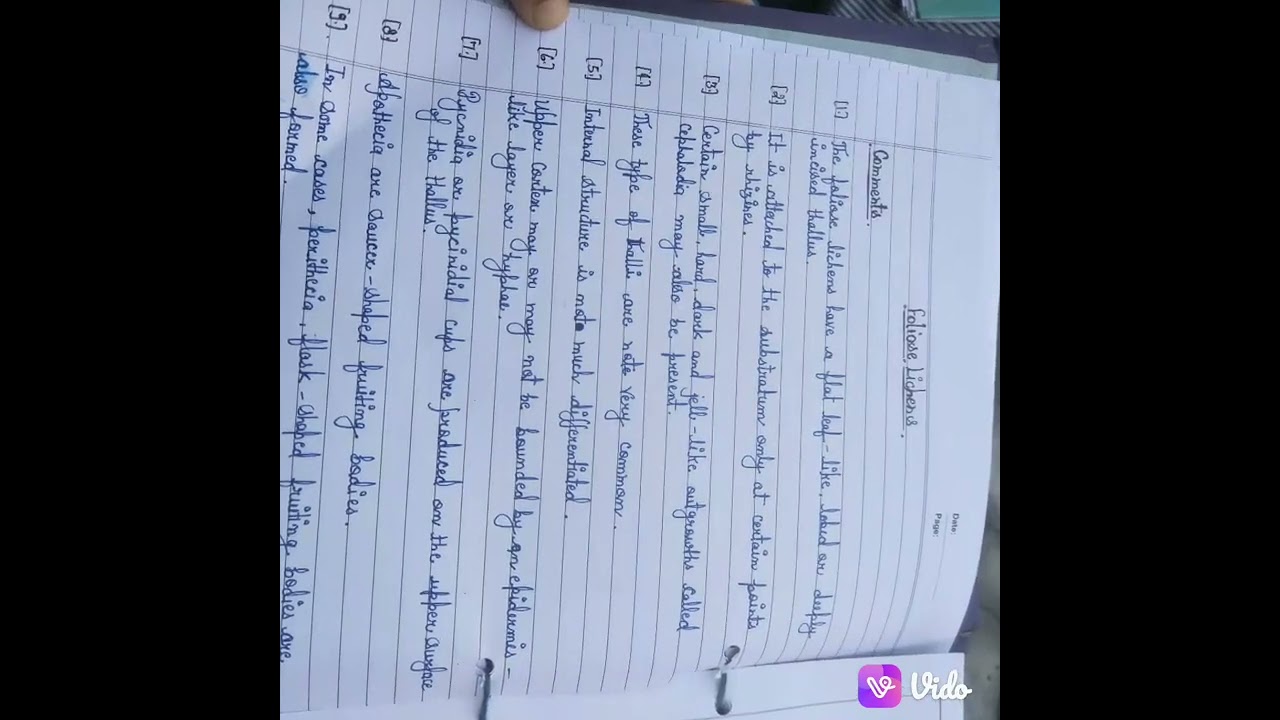 Date:
Page:
Foliose Lichens.
Comments.
[1] The foliose lichens have a flat leaf-like, lobed or deeply
incised thallus.
[2] It is attached to the substratum only at certain points
by rhizines.
[3] Certain small, hard, dark and jell-like outgrowths called
cephalodia may also be present.
[4.] These type of thalli are note very common.
[5.] Internal structure is note much differentiated.
[6.] Upper cortex may or may not be bounded by an epidermis-
like layer or hyphae.
[7.] Pycnidia or pycinidial cups are produced on the upper surface
of the thallus.
[8] Apothecia are saucer-shaped fruiting bodies.
[9.] In some cases, perithecia, flask-shaped fruiting bodies are
also formed.
Vido